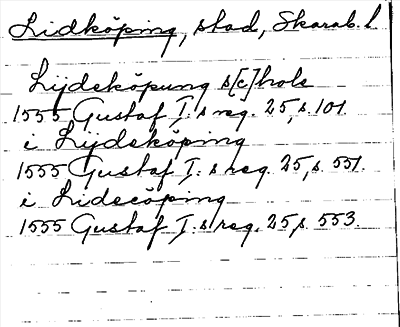 Lidköping, stad, Skarab. l.
Lijdeköpung s[c]hole
1555 Gustaf I:s reg. 25, s. 101.
i Lijdeköping
1555 Gustaf I:s reg. 25, s. 551.
i Lidecöping
1555 Gustaf I:s reg. 25, s. 553.